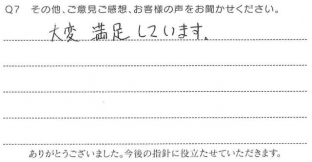 Q7 その他、ご意見ご感想、お客様の声をお聞かせください。
大変 満足しています.
ありがとうございました。今後の指針に役立たせていただきます。